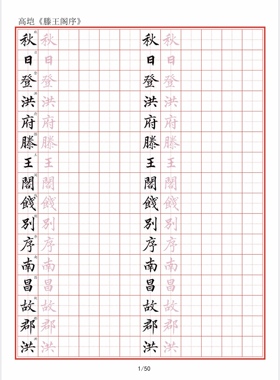 高垲《滕王阁序》
秋 秋 秋 秋
日 日 日 日
登 登 登 登
洪 洪 洪 洪
府 府 府 府
滕 滕 滕 滕
王 王 王 王
閣 閣 閣 閣
餞 餞 餞 餞
別 別 別 別
序 序 序 序
南 南 南 南
昌 昌 昌 昌
故 故 故 故
郡 郡 郡 郡
洪 洪 洪 洪
1/50